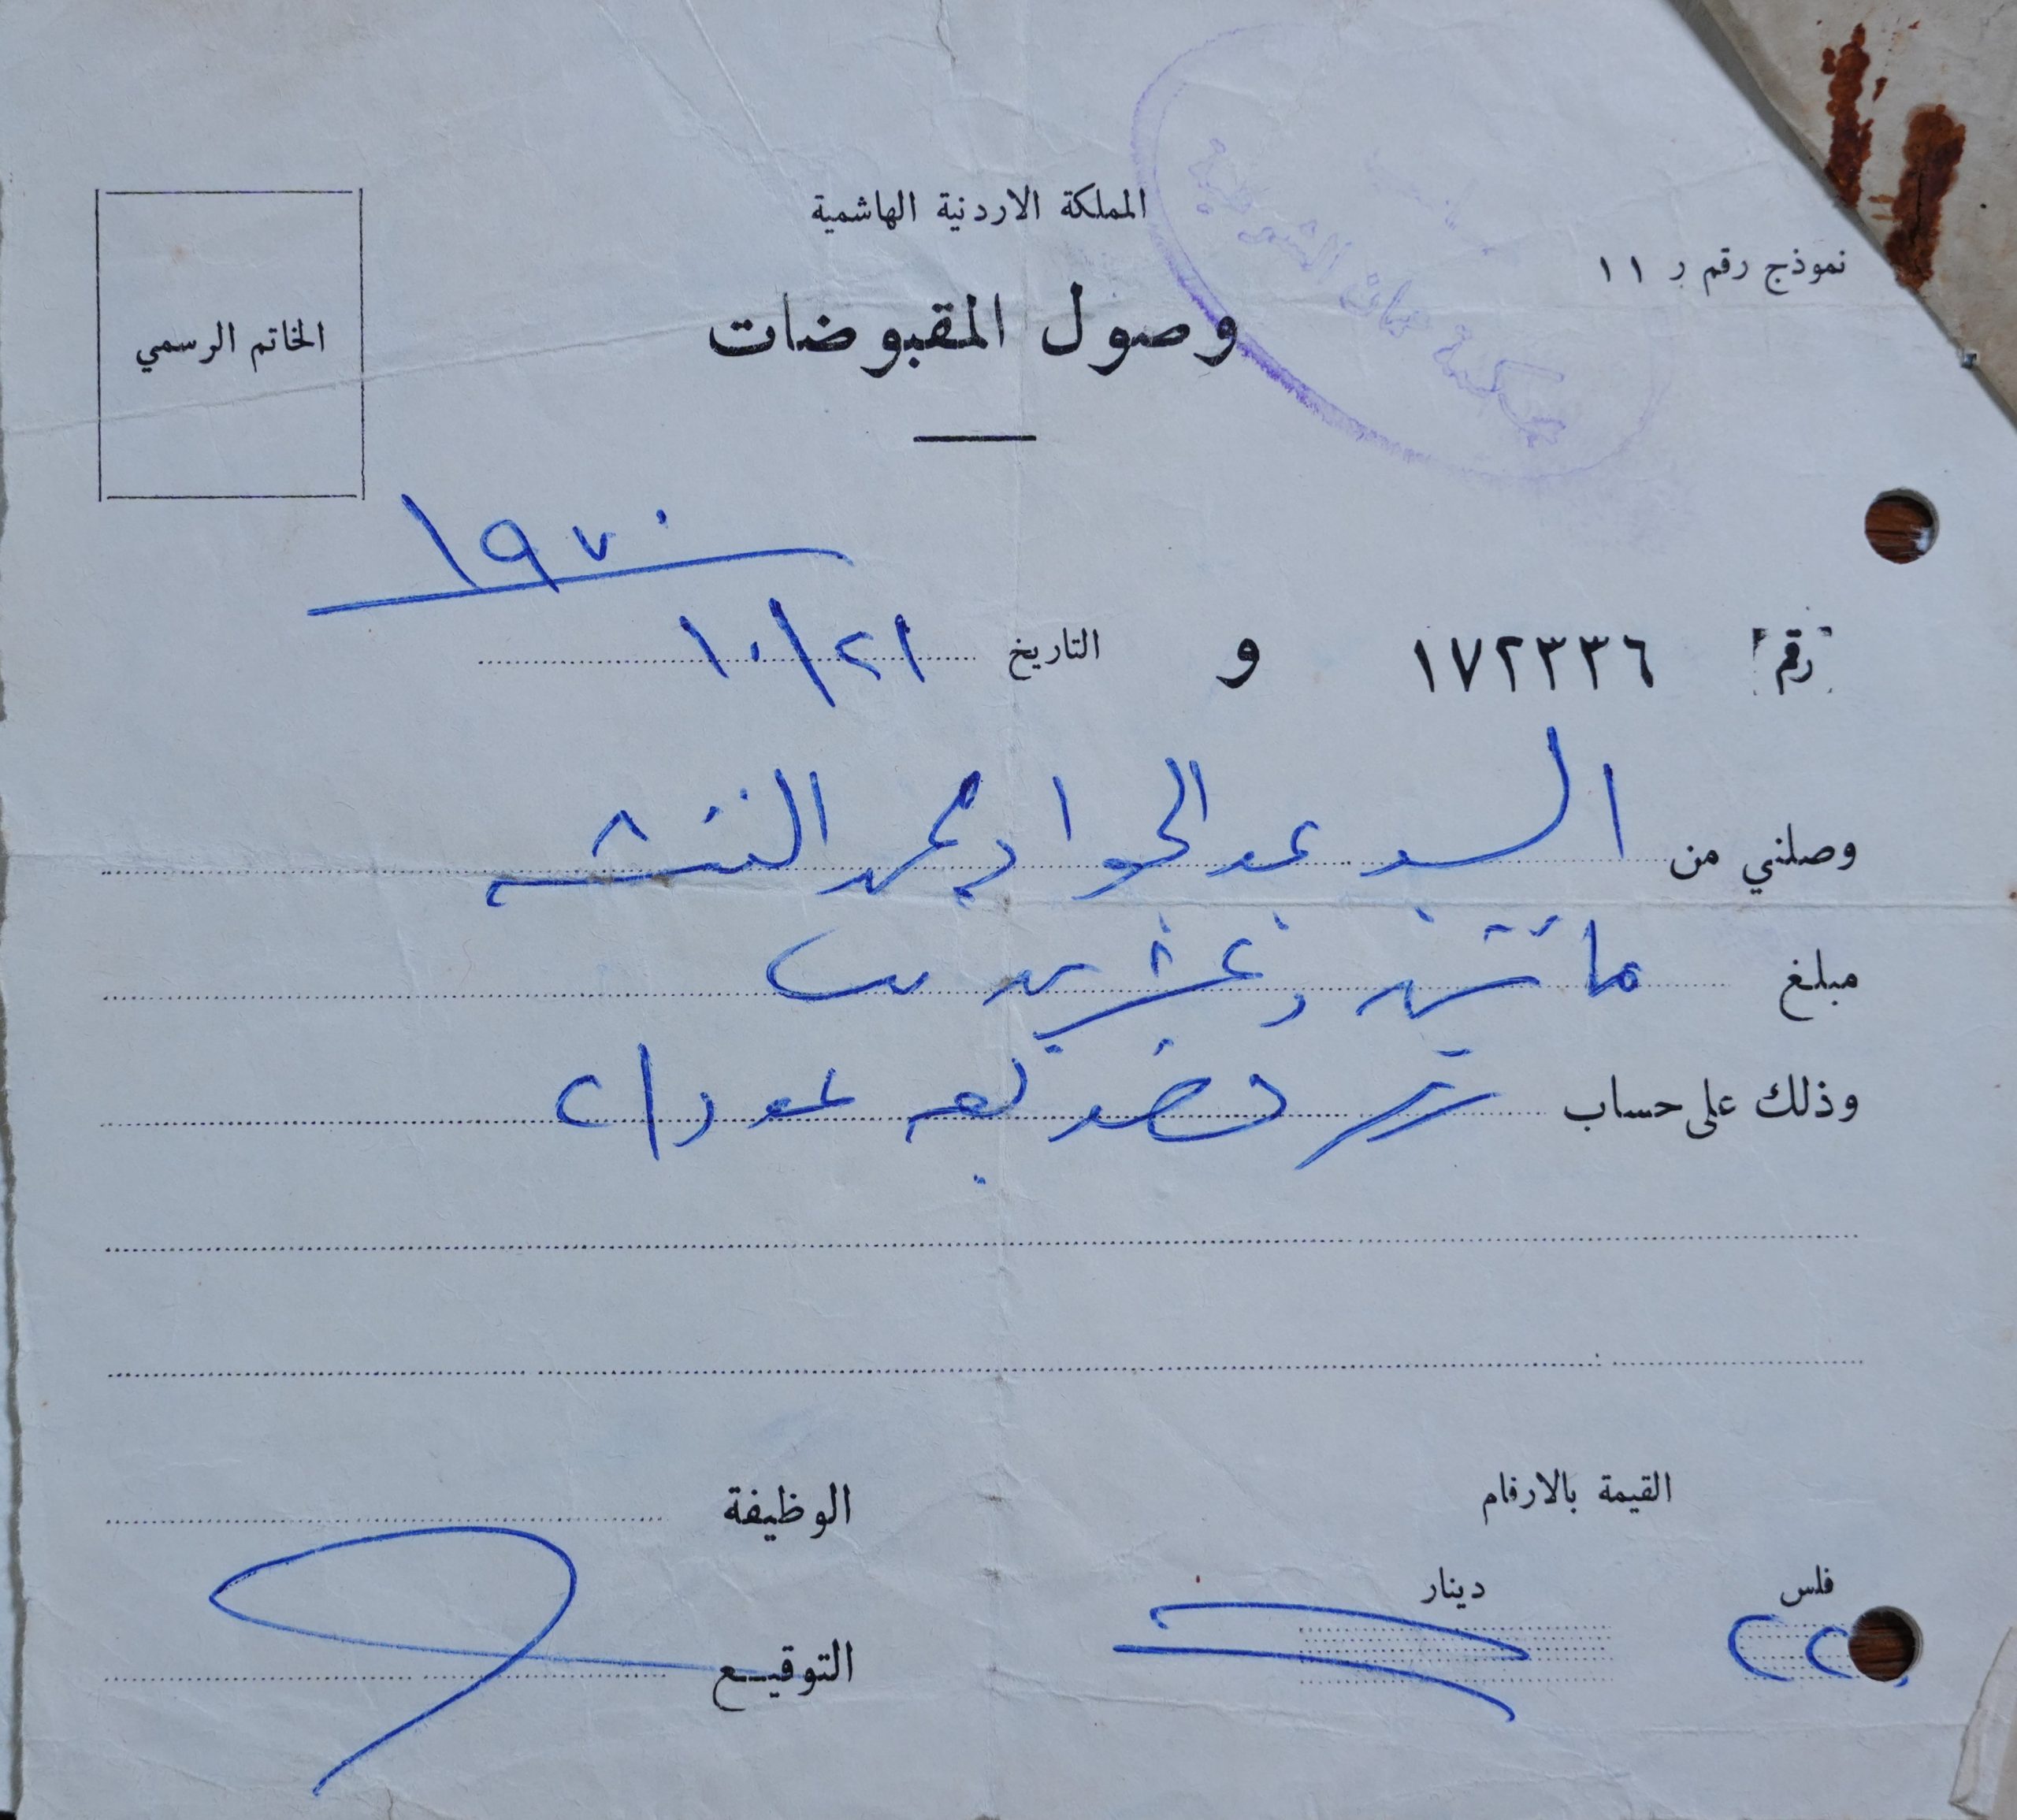 المملكة الاردنية الهاشمية
نموذج رقم ر ١١
وصول المقبوضات
الخاتم الرسمي
محكمة عمان الشرعية
١٩٧٠
رقم ١٧٢٣٣٦ و التاريخ ٢١/١٠
وصلني من السيد عبد الجواد محمد النتشه
مبلغ مائتين وعشرين فلس
وذلك على حساب
القيمة بالارقام
الوظيفة
فلس دينار
٢٢٠
التوقيع